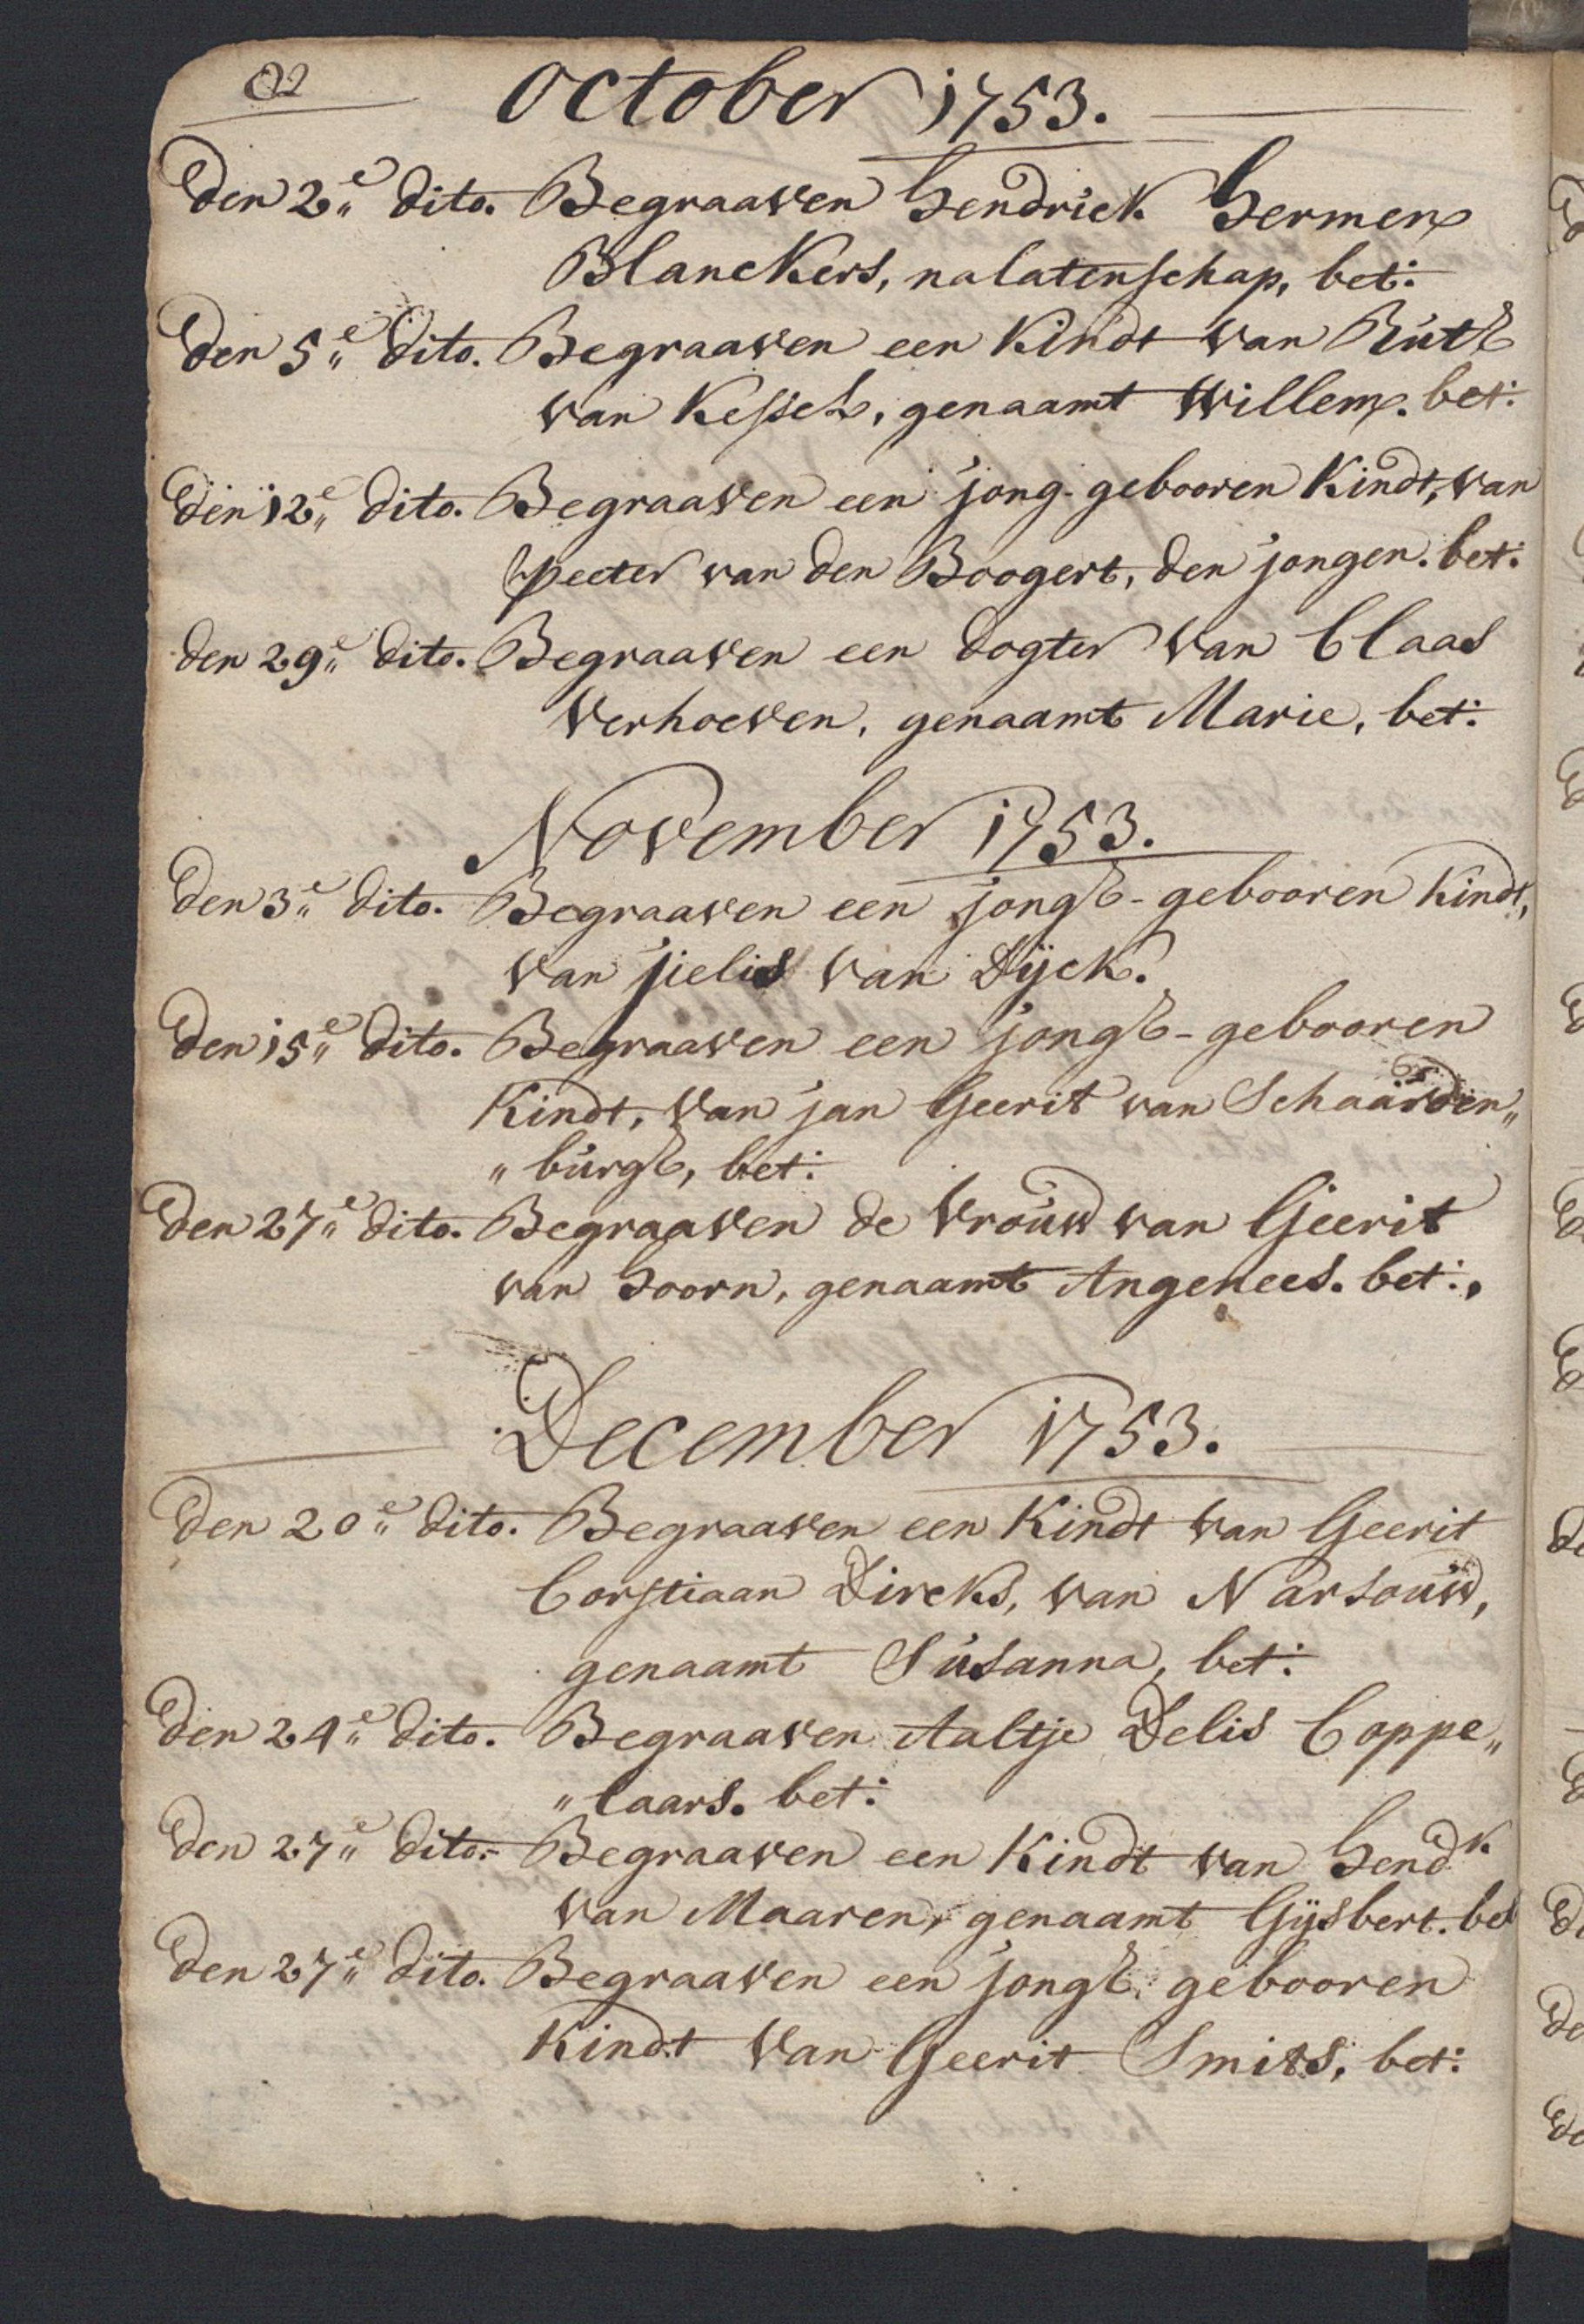 October 1753.
Den 2e dito. Begraaven Hendrick Hermen
Blanckers, nalatenschap, bet:
Den 5e dito. Begraaven een Kindt van Rút
van Kessel, genaamt Willem. bet:
Den 12e dito. Begraaven een jong-gebooren Kindt, van
Peeter van den Boogert, den jongen. bet:
den 29e dito. Begraaven een dogter van Claas
Verhoeven, genaamt Marie, bet:
November 1753.
Den 3e dito. Begraaven een jongh-gebooren Kindt,
van jielis van Dÿck.
Den 15e dito. Begraaven een jongh-gebooren
Kindt, van jan Geerit van Schaarden„
„búrgh, bet:
Den 27e dito. Begraaven de Vroúw van Geerit
van Hoorn, genaamt Angenees. bet:
December 1753.
Den 20e dito. Begraaven een Kindt van Geerit
Corstiaan Dircks, van Narsoúw,
genaamt Súsanna, bet:
Den 24e dito. Begraaven Aaltje Delis Coppe„
„laars. bet:
Den 27e dito. Begraaven een Kindt van Hendk
van Maaren, genaamt Gÿsbert. bet
Den 27e dito. Begraaven een jongh gebooren
Kindt van Geerit Smits, bet: